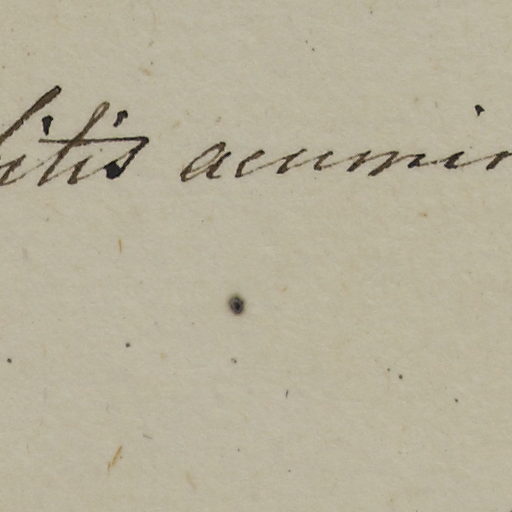 itis acumin